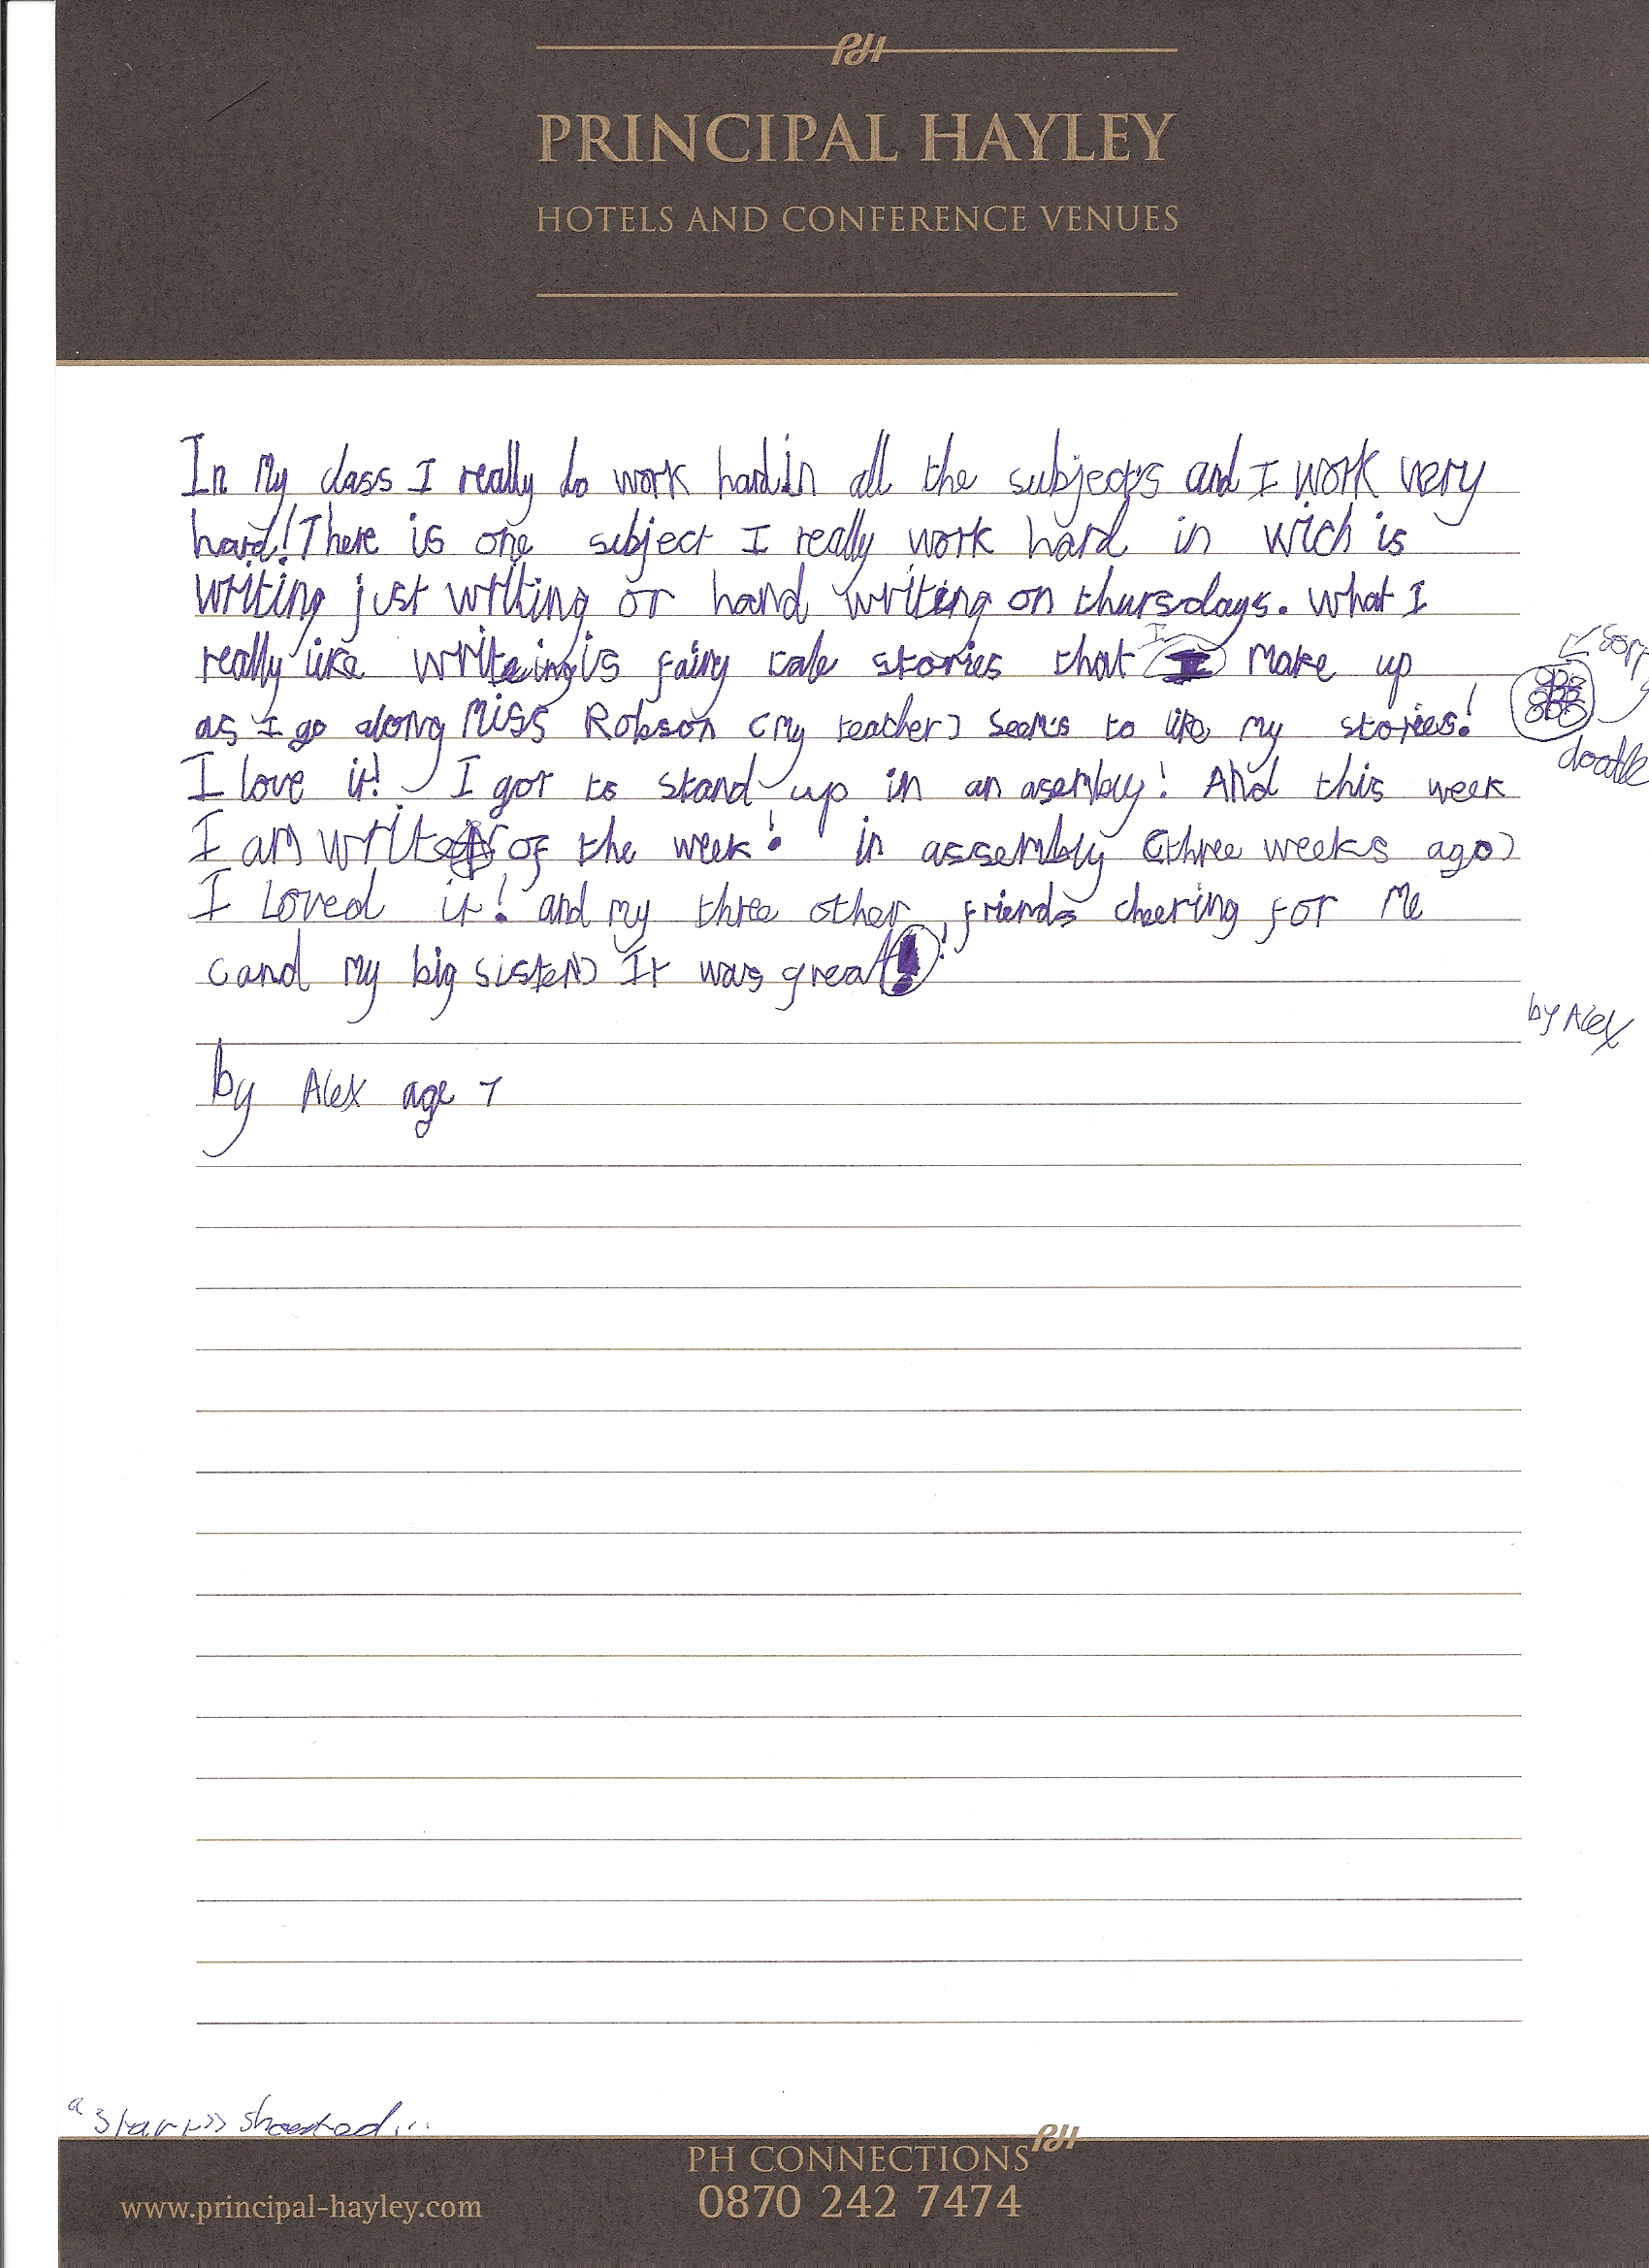 PH
PRINCIPAL HAYLEY
HOTELS AND CONFERENCE VENUES
In my class I really do work hard in all the subjects and I work very
hard! There is one subject I really work hard in wich is
writing just writing or hand writing on thursdays. What I
really like writeing is fairy tale stories that I make up
as I go along Miss Robson (my teacher) seems to like my stories!
I love it! I got to stand up in an asembly! And this week
I am writer of the week! in assembly (three weeks ago)
I Loved it! and my three other friends cheering for me
(and my big sister) It was great!
by Alex age 7
doodle
by Alex
"Start" shouted...
PH
PH CONNECTIONS
www.principal-hayley.com
0870 242 7474